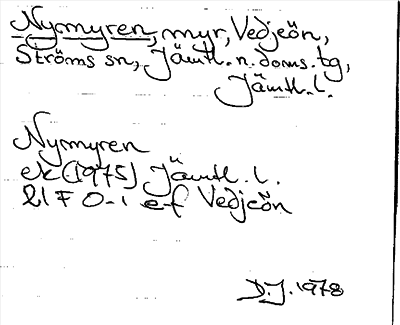 Nymyren, myr, Vedjeön,
Ströms sn, Jämtl. n. doms. tg,
Jämtl. l.
Nymyren
ek (1975) Jämtl. l.
21 F 0-1 e-f Vedjeön
D.J. 1978